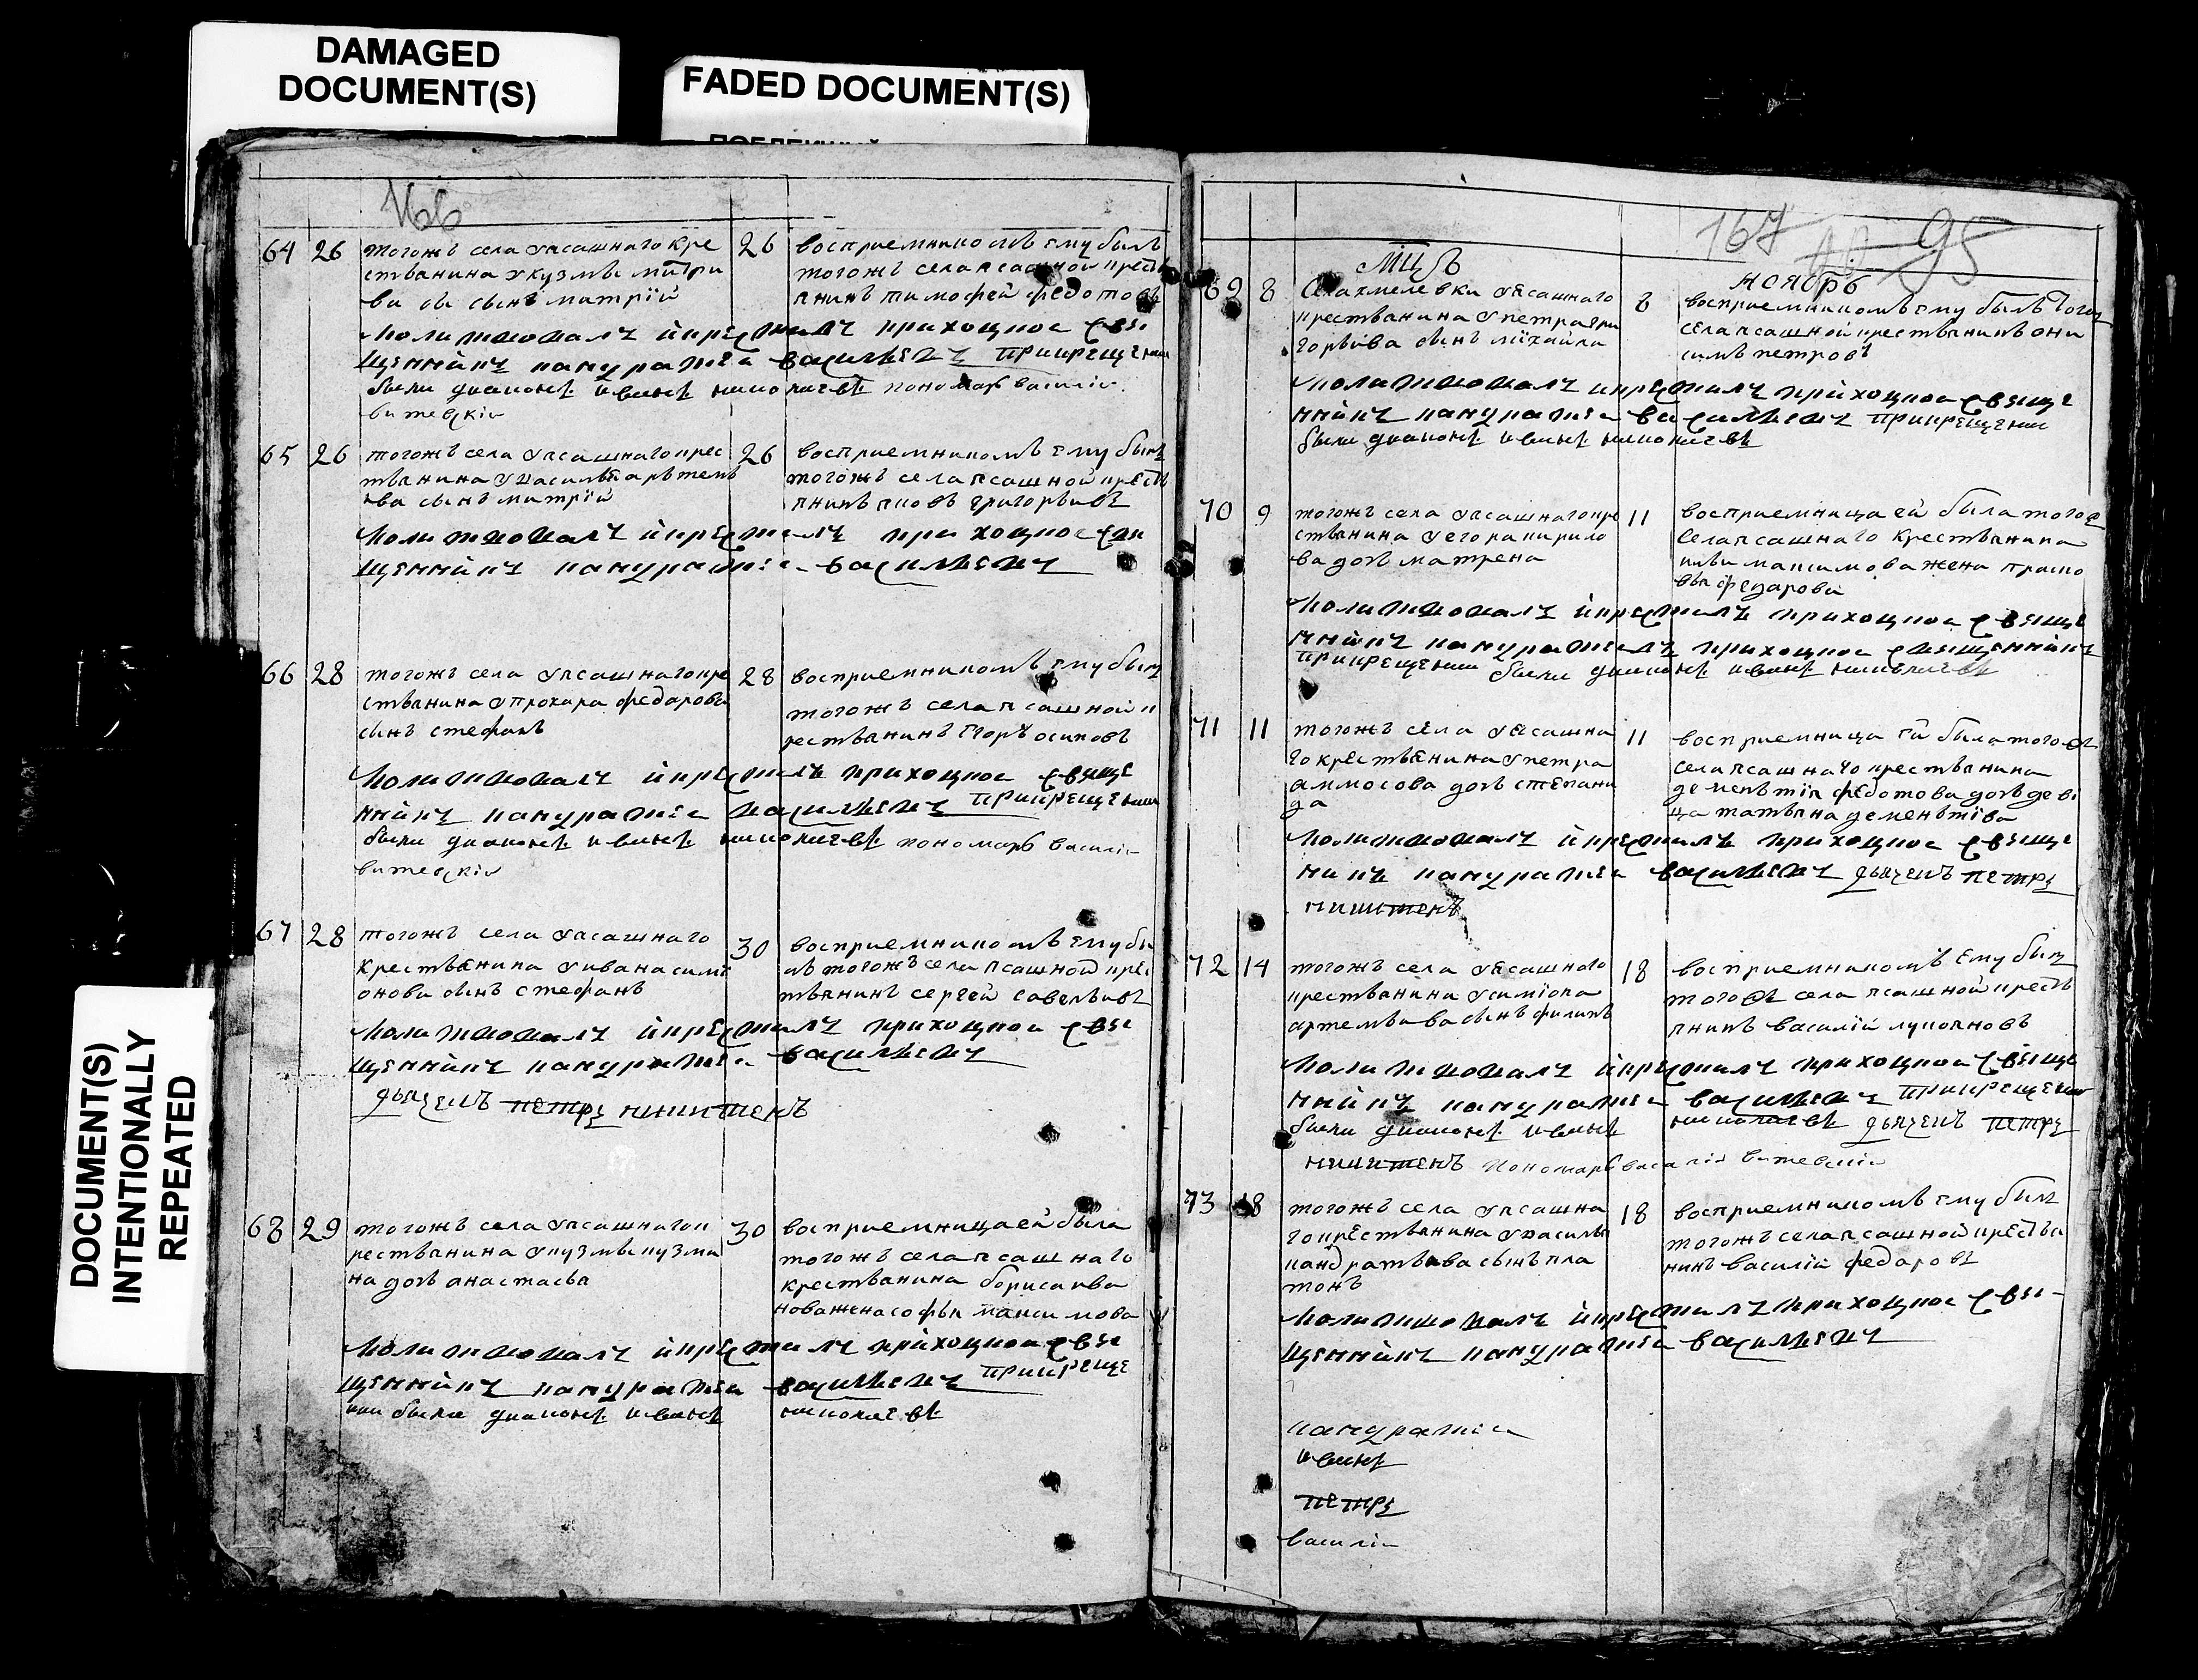 DAMAGED
DOCUMENT(S)
FADED DOCUMENT(S)
DOCUMENT(S)
INTENTIONALLY
REPEATED
166
64 26 тогожъ села уясашнаго кре
ствянина укузмы митри
ва сынъ митрïй
26 восприемникомъ ему былъ
тогожъ села ясашной крестья
нинъ тимофей федотовъ
молитвовалъ икрестилъ приходцкой свя
щенникъ панкратей васильевъ прикрещении
были диаконъ иванъ николаевъ пономарь василiй
витевскiй
65 26 тогожъ села уясашнаго крес
твянина увасилья артемь
ева сынъ митрïй
26 восприемникомъ ему былъ
тогожъ села ясашной крестья
нинъ яковъ григорьивъ
молитвовалъ икрестилъ приходцкой свя
щенникъ панкратей васильевъ
66 28 тогожъ села уясашнаго кре
ствянина упрохара федарова
сынъ стефанъ
28 восприемникомъ ему былъ
тогожъ села ясашной к
рествянинъ егоръ осиповъ
молитвовалъ икрестилъ приходцкой свяще
нникъ панкратей васильевъ прикрещении
были диаконъ иванъ николаевъ пономарь василiй
витевскiй
67 28 тогожъ села уясашнаго
крествянина уивана сими
онова сынъ стефанъ
30 восприемникомъ ему бы
лъ тогожъ села ясашной крес
твянинъ сергей савельивъ
молитвовалъ икрестилъ приходцкой свя
щенникъ панкратей васильевъ
дьячекъ петръ никитенъ
68 29 тогожъ села уясашнаго к
рествянина укузмы кузми
на дочь анастасья
30 восприемница ей была
тогожъ села ясашнаго
крествянина бориса ива
нова жена софья максимова
молитвовалъ икрестилъ приходцкой свя
щенникъ панкратей васильевъ прикреще
нии были диаконъ иванъ николаевъ
167 95
мцъ ноябрь
69 8 Села хмелевки уясашнаго
крествянина упетра гри
горьива сынъ михайла
8 восприемникомъ ему былъ тогож
села ясашной крествянинъ они
симъ петровъ
молитвовалъ икрестилъ приходцкой свяще
нникъ панкратей васильевъ прикрещении
были диаконъ иванъ николаевъ
70 9 тогожъ села уясашнаго кре
ствянина уегора кирило
ва дочь матрена
11 восприемница ей была тогож
села ясашнаго крествянина
максимова жена праско
вья федарова
молитвовалъ икрестилъ приходцкой свяще
нникъ панкратей приходцкой священникъ
прикрещении были диаконъ иванъ николаевъ
71 11 тогожъ села уясашна
го крествянина упетра
аммосова дочь степани
да
11 восприемница ей была тогожъ
села ясашнаго крествянина
деменьтiя федотова дочь деви
ца татьяна деменьтïва
молитвовалъ икрестилъ приходцкой свяще
никъ панкратей васильевъ дьячекъ петръ
никитенъ
72 14 тогожъ села уясашнаго
крествянина усимiона
артемьива сынъ филипъ
18 восприемникомъ ему былъ
тогожъ села ясашной крестья
нинъ василiй лукояновъ
молитвовалъ икрестилъ приходцкой свяще
нникъ панкратей васильевъ прикрещении
были диаконъ иванъ николаевъ дьячекъ петръ
никитенъ пономарь василiй витевскiй
73 18 тогожъ села уясашна
го крествянина увасилья
кандратьева сынъ пла
тонъ
18 восприемникомъ ему былъ
тогожъ села ясашной крествя
нинъ василiй федаровъ
молитвовалъ икрестилъ приходцкой свя
щенникъ панкратей васильевъ
панкратей
иванъ
петръ
василiй